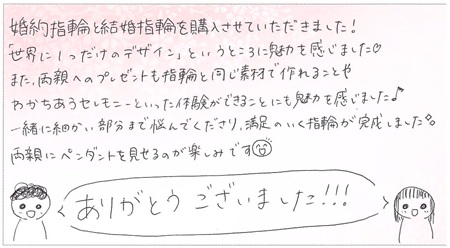 婚約指輪と結婚指輪を購入させていただきました!
「世界に1つだけのデザイン」というところに魅力を感じました♡
また、両親へのプレゼントも指輪と同じ素材で作れることや
わかちあうセレモニーといった体験ができることにも魅力を感じました♪
一緒に細かい部分まで悩んでくださり、満足のいく指輪が完成しました。
両親にペンダントを見せるのが楽しみです
ありがとうございました!!!